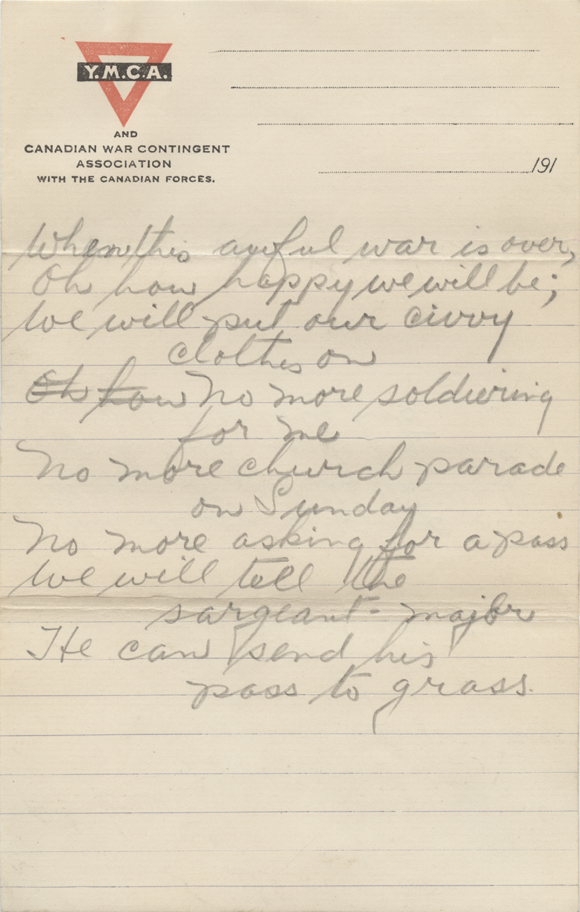 Y.M.C.A.
AND
CANADIAN WAR CONTINGENT
ASSOCIATION
WITH THE CANADIAN FORCES.
191
When this awful war is over,
Oh how happy we will be;
We will put our civvy
clothes on
Oh how No more soldiering
for me
No more church parade
on Sunday
No more asking for a pass
We will tell the
sargeant-major
He can send his
pass to grass.